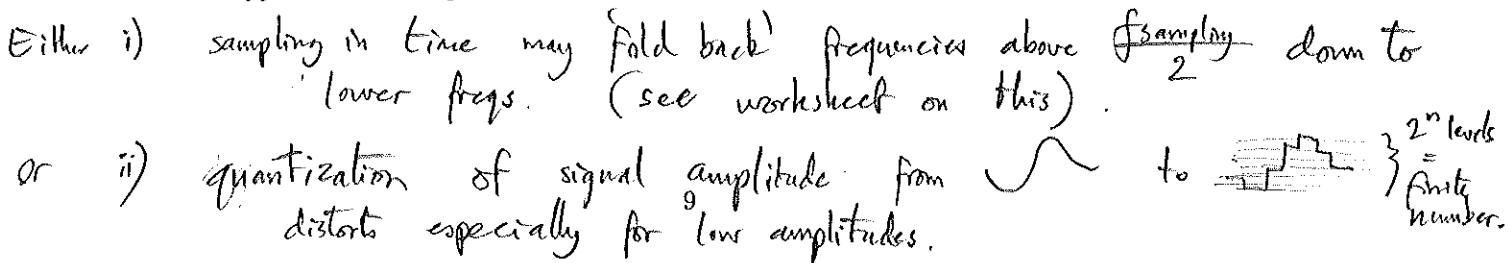 Either i) sampling in time may 'fold back' frequencies above fsampling/2 down to
lower freqs. (see worksheet on this).
or ii) quantization of signal amplitude from to } 2ⁿ levels = finite number.
9
distorts especially for low amplitudes.